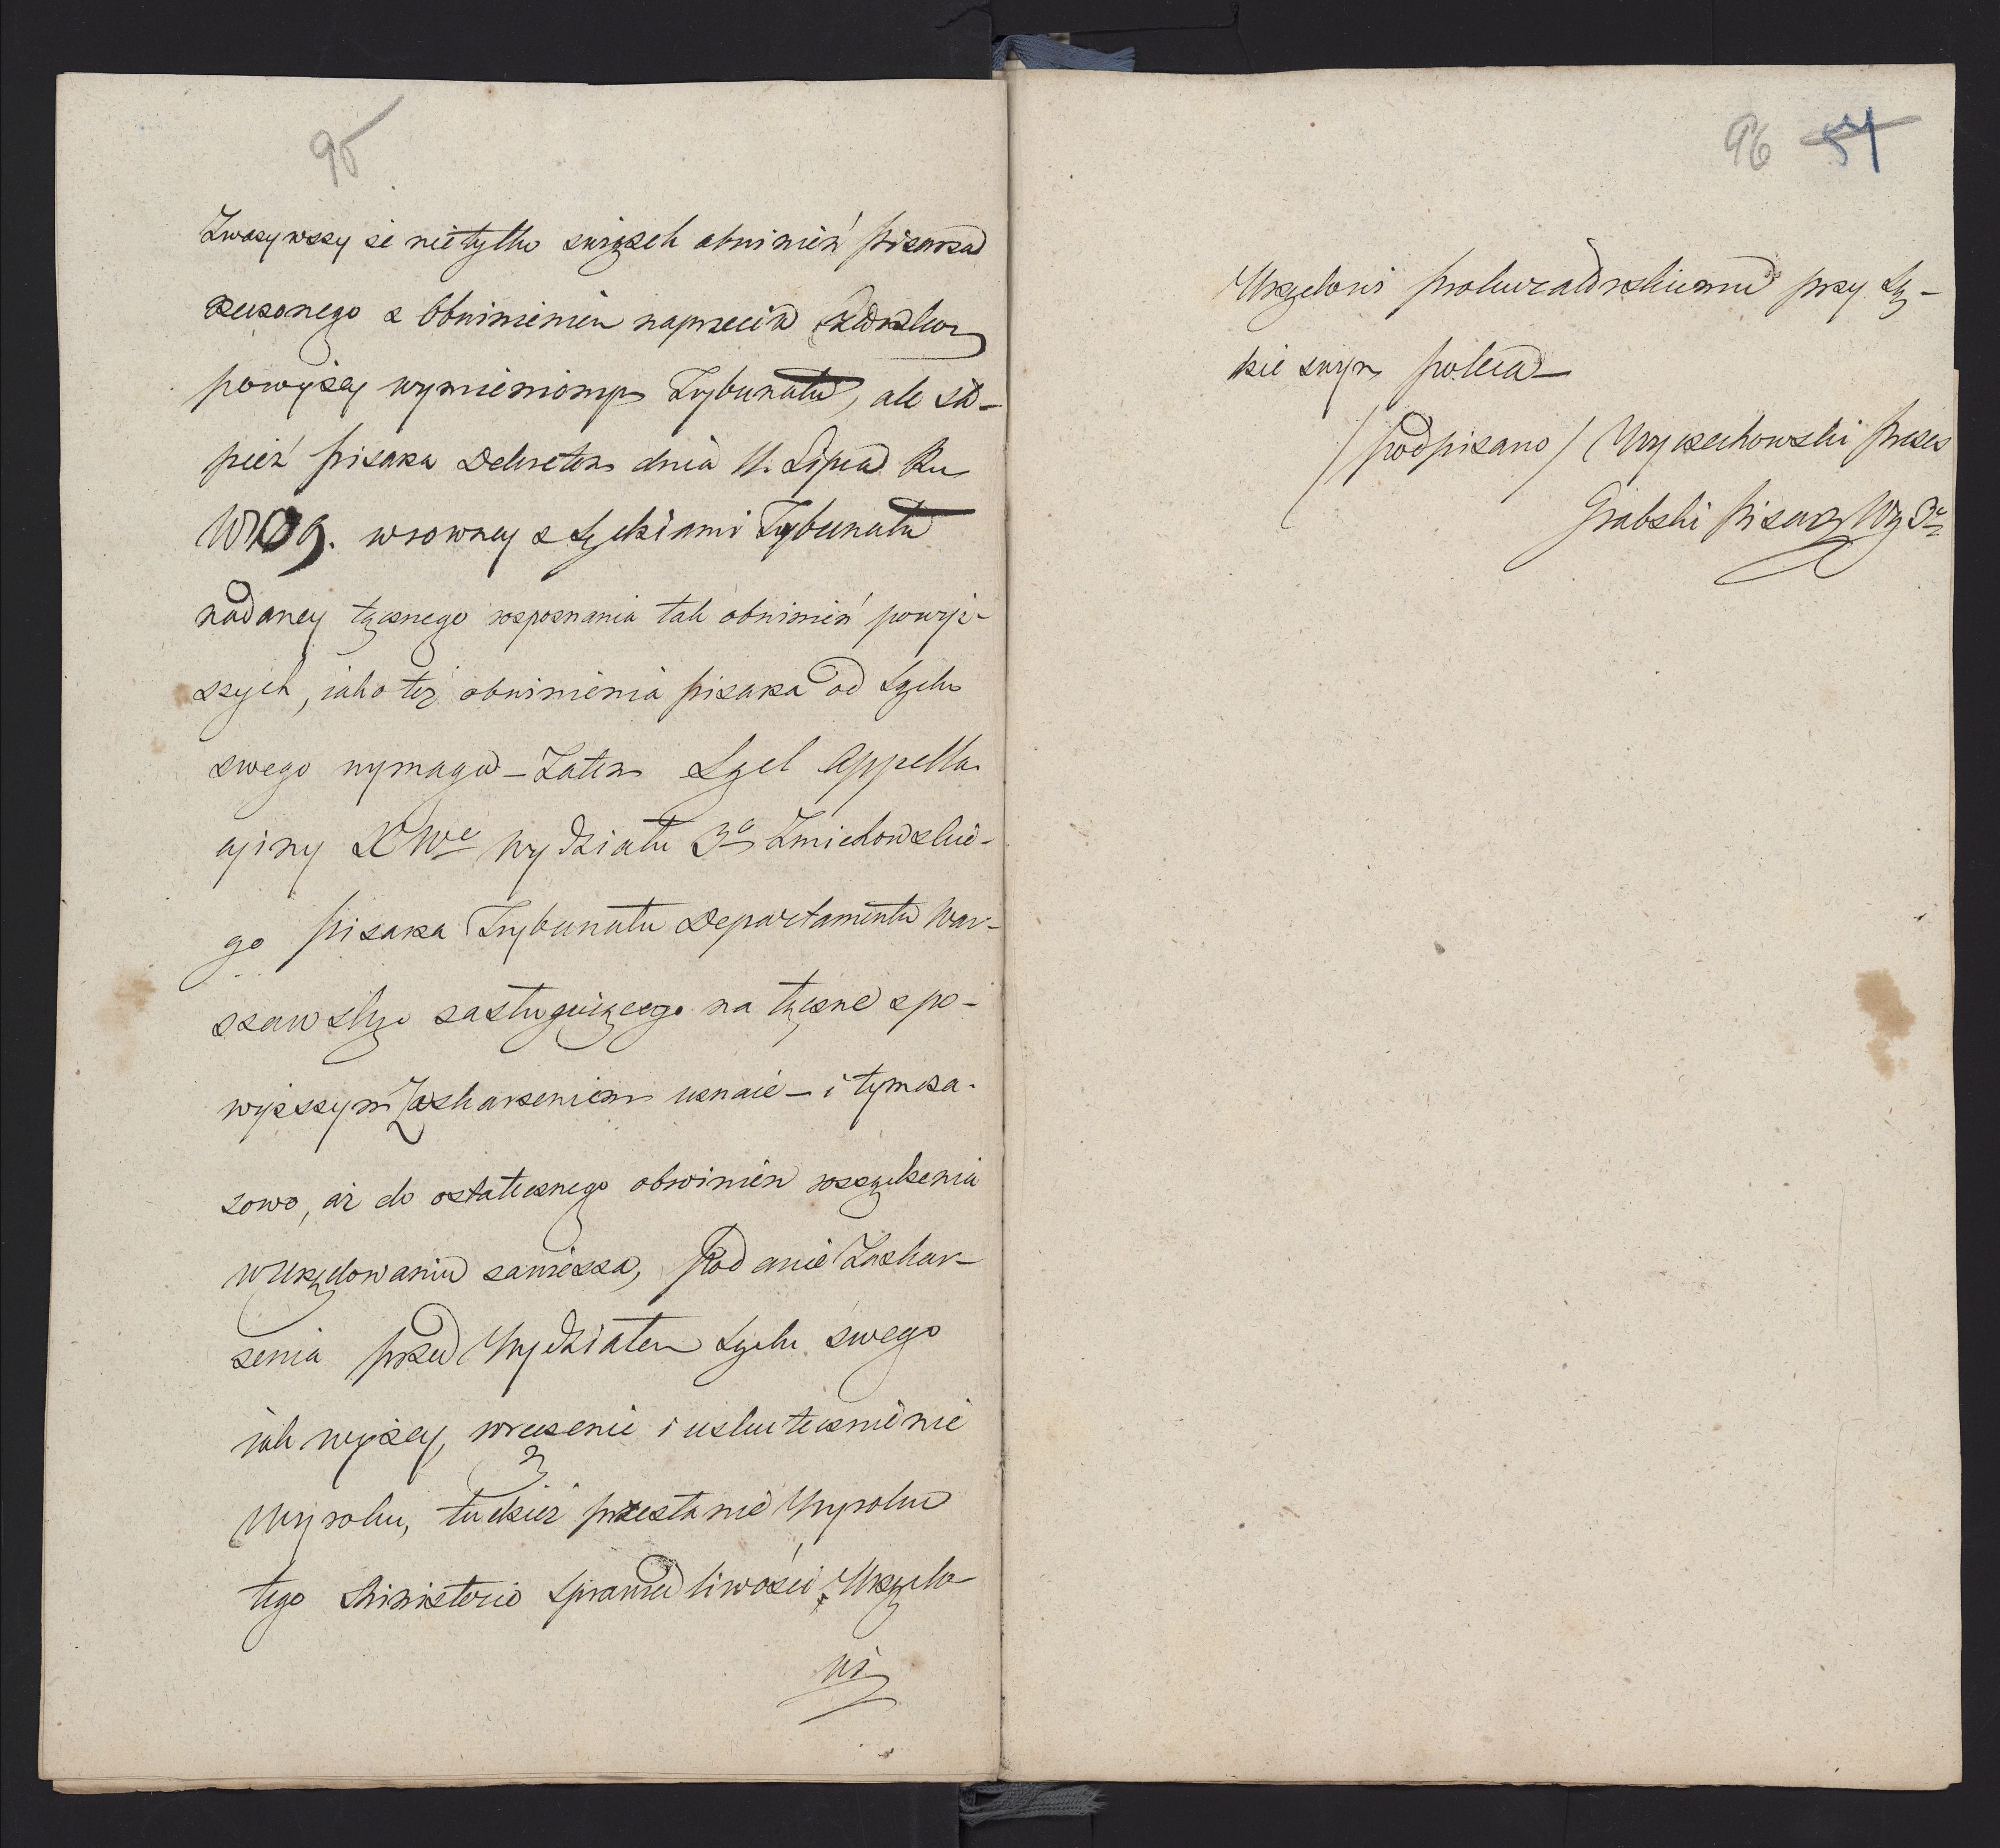 95
Zważywszy że nietylko związek obwinień pisarza
rzeczonego z obwinieniem naprzeciw
powyżey wymienionym Trybunału, ale sto-
pień pisarza Dekretem dnia 11. Lipca Ru
1809. w rowney z Sędziami Trybunału
nadaney łącznego rospoznania tak obwinień powyż-
szych, iako też obwinienia pisarza od Sądu
swego wymaga – Zatem Sąd Appella
cyiny XWo Wydziału 3o Zmichowskie-
go pisarza Trybunału Departamentu War-
szawskgo zasługuiącego na łączne z po-
wyższym Zaskarzeniem uznaie – i tymcza-
sowo, aż do ostatecznego obwinien rozsądzenia
w Urzędowaniu zawiesza, podanie Zaskar-
zenia przed Wydziałem Sądu swego
iak wyżey, wręczenie i uskutecznienie
Wyroku, tudzież przesłanie Wyroku
tego Ministerio Sprawiedliwości, Urzędo
wi
96 54
Urzędowi prokuratorskiemu przy Są-
dzie swym poleca –
/podpisano/ Woyciechowski prezes
Grabski pisarz Wy 3o